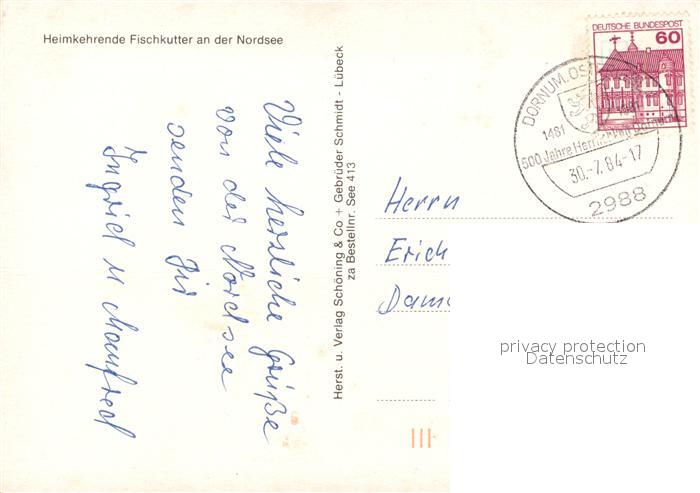 Heimkehrende Fischkutter an der Nordsee
Viele herzliche Grüße
von der Nordsee
senden Dir
Ingrid u Manfred
Herst. u. Verlag Schöning & Co + Gebrüder Schmidt - Lübeck
za Bestellnr. See 413
DEUTSCHE BUNDESPOST
60
DORNUM, OST
1481
500 Jahre Herrlichkeit Dornum
30.-7.84-17
2988
Herrn
Erich
privacy protection
Datenschutz